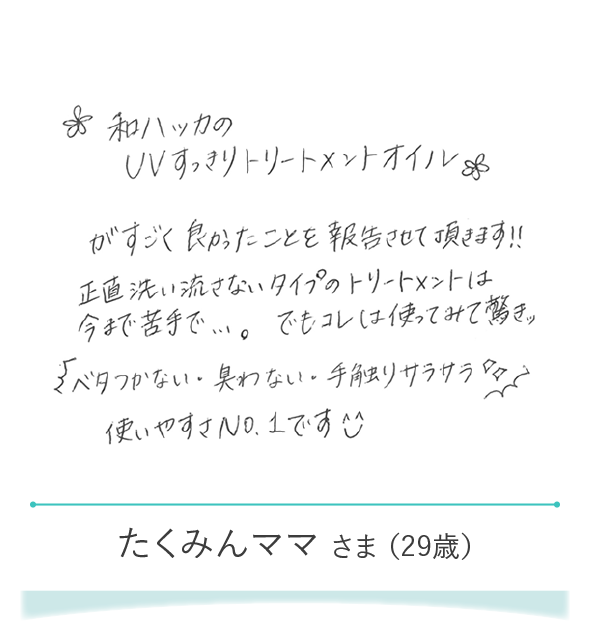 和ハッカの
UVすっきりトリートメントオイル
がすごく良かったことを報告させて頂きます!!
正直洗い流さないタイプのトリートメントは
今まで苦手で…。でもコレは使ってみて驚きッ
ベタつかない・臭わない・手触りサラサラ
使いやすさNO.1です
たくみんママ さま (29歳)